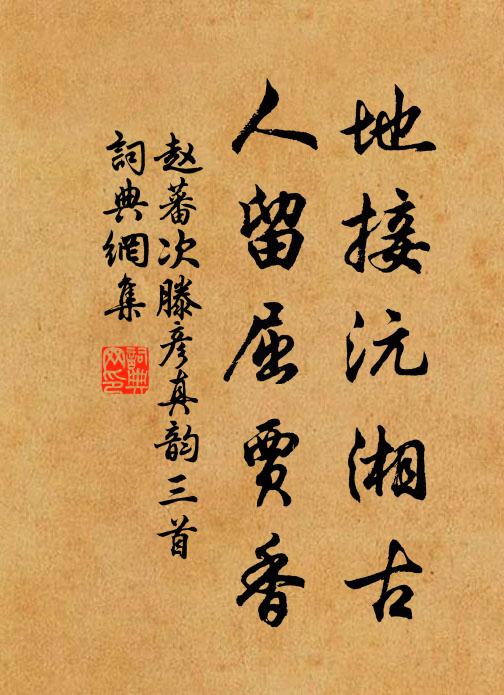 地接沅湘古
人留屈贾香
赵蕃次滕彦真韵三首
詞典網集
詞典网印